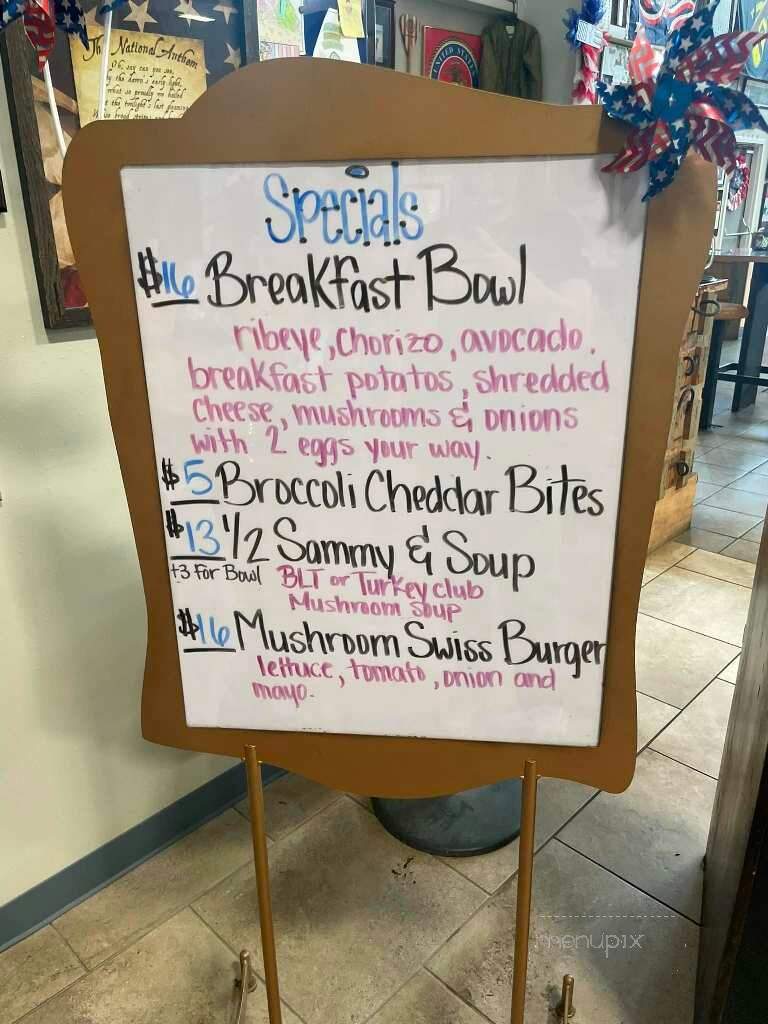 The National Anthem
Oh, say can you see,
by the dawn's early light,
what so proudly we hailed
at the twilight's last gleaming
UNITED STATES
Specials
$16 Breakfast Bowl
ribeye, chorizo, avocado,
breakfast potatos, shredded
cheese, mushrooms & onions
with 2 eggs your way.
$5 Broccoli Cheddar Bites
$13 1/2 Sammy & Soup
+3 For Bowl BLT or Turkey club
Mushroom soup
$16 Mushroom Swiss Burger
lettuce, tomato, onion and
mayo.
menupix